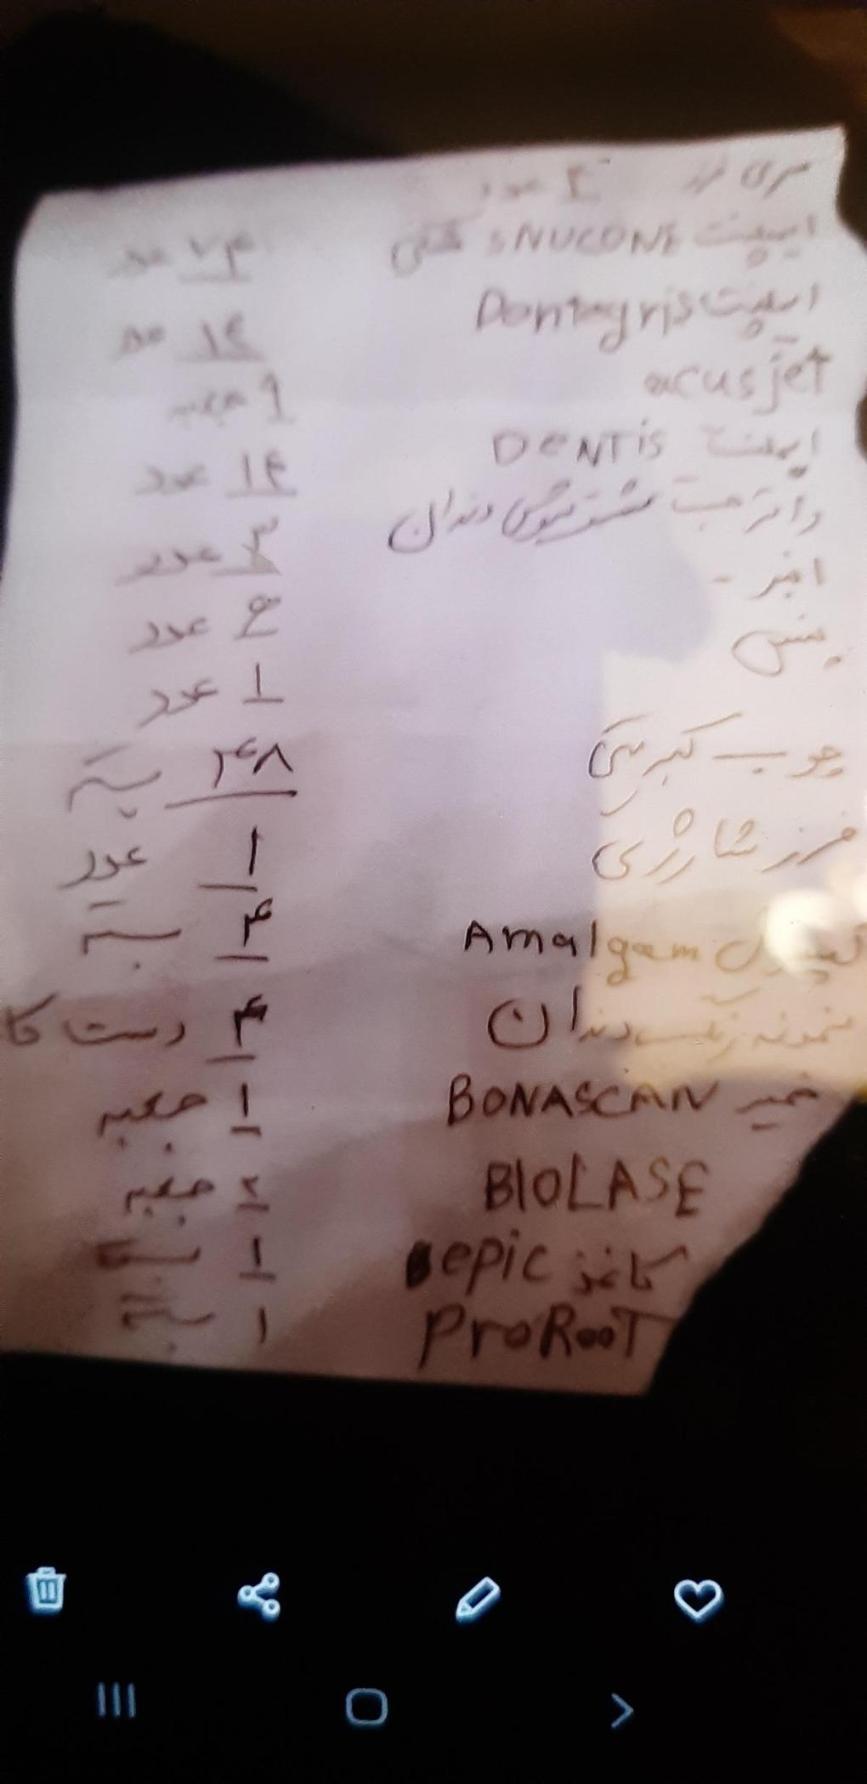 سری فرز ۴ عدد
ایمپلنت SNUCONE ۲۴ عدد
ایمپلنت Dentegris ۱۴ عدد
acusjet ۹ جعبه
ایمپلنت DENTIS ۱۴ عدد
دندان ۳ عدد
۴ عدد
پنس ۱ عدد
چوب کبریتی ۴۸
فرز شارژی ۱ عدد
کپسول Amalgam ۴ بسته
نمونه رنگ دندان ۴ دست کا
خمیر BONASCAN ۱ جعبه
BIOLASE ۲ جعبه
کاغذ epic ۱ بسته
ProRooT ۱ بسته